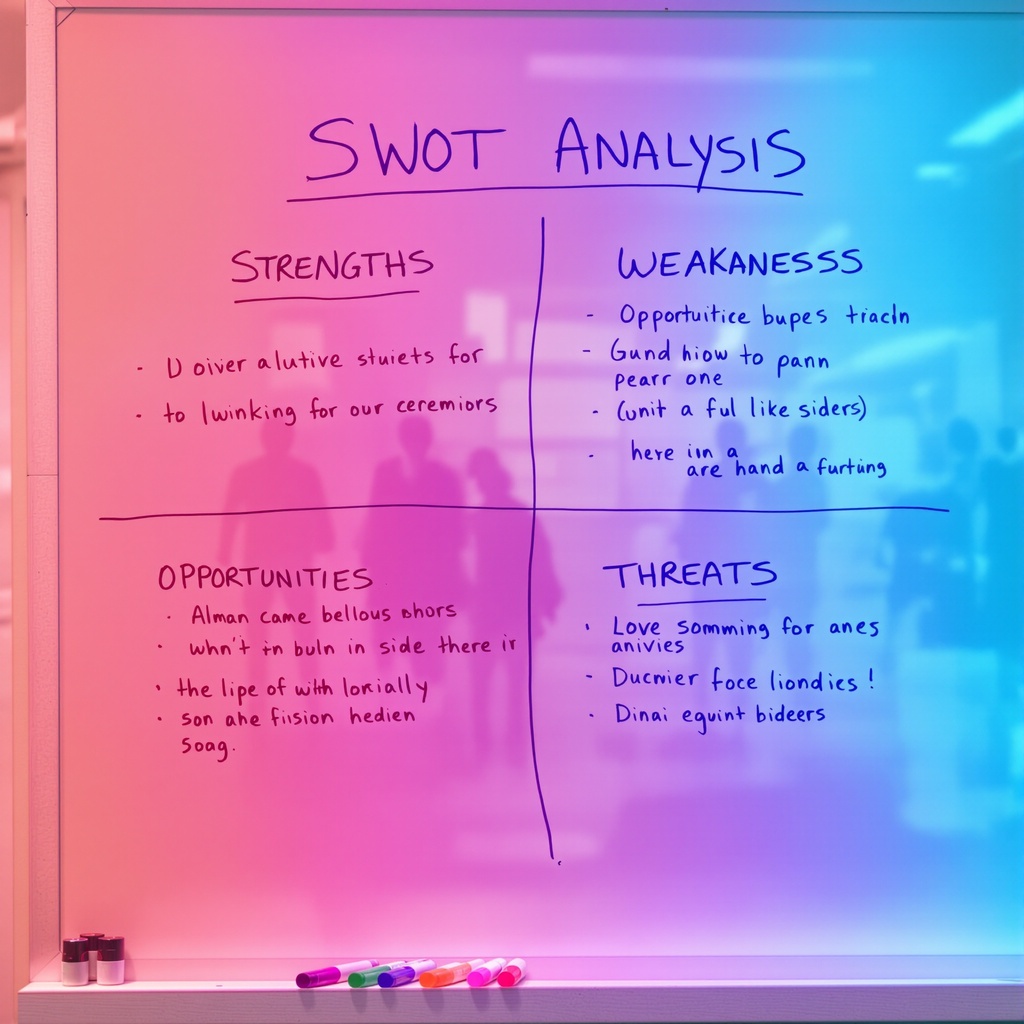 SWOT ANALYSIS
STRENGTHS
- D oiver alutive stuiets for
- to lwinking for our ceremiors
WEAKANESSS
- Opportuitice bupes triacln
- Gund hiow to pann
pearr one
- (unit a ful like siders)
- here iin a
are hand a furtiing
OPPORTUNITIES
· Alman came bellous ohors
· whn't in buln in side there ir
· the lipe of with lorially
· son ahe fiision hedien
Soag.
THREATS
· Love somming for anes
anivies
- Ducnier foce liondies!
· Dinai eguint bideers